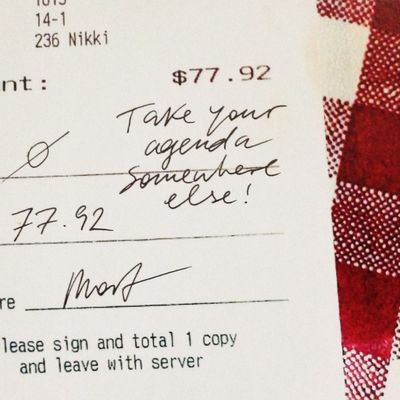 14-1
236 Nikki
nt: $77.92
Take your
agenda
somewhere
else!
Ø
77.92
re
lease sign and total 1 copy
and leave with server